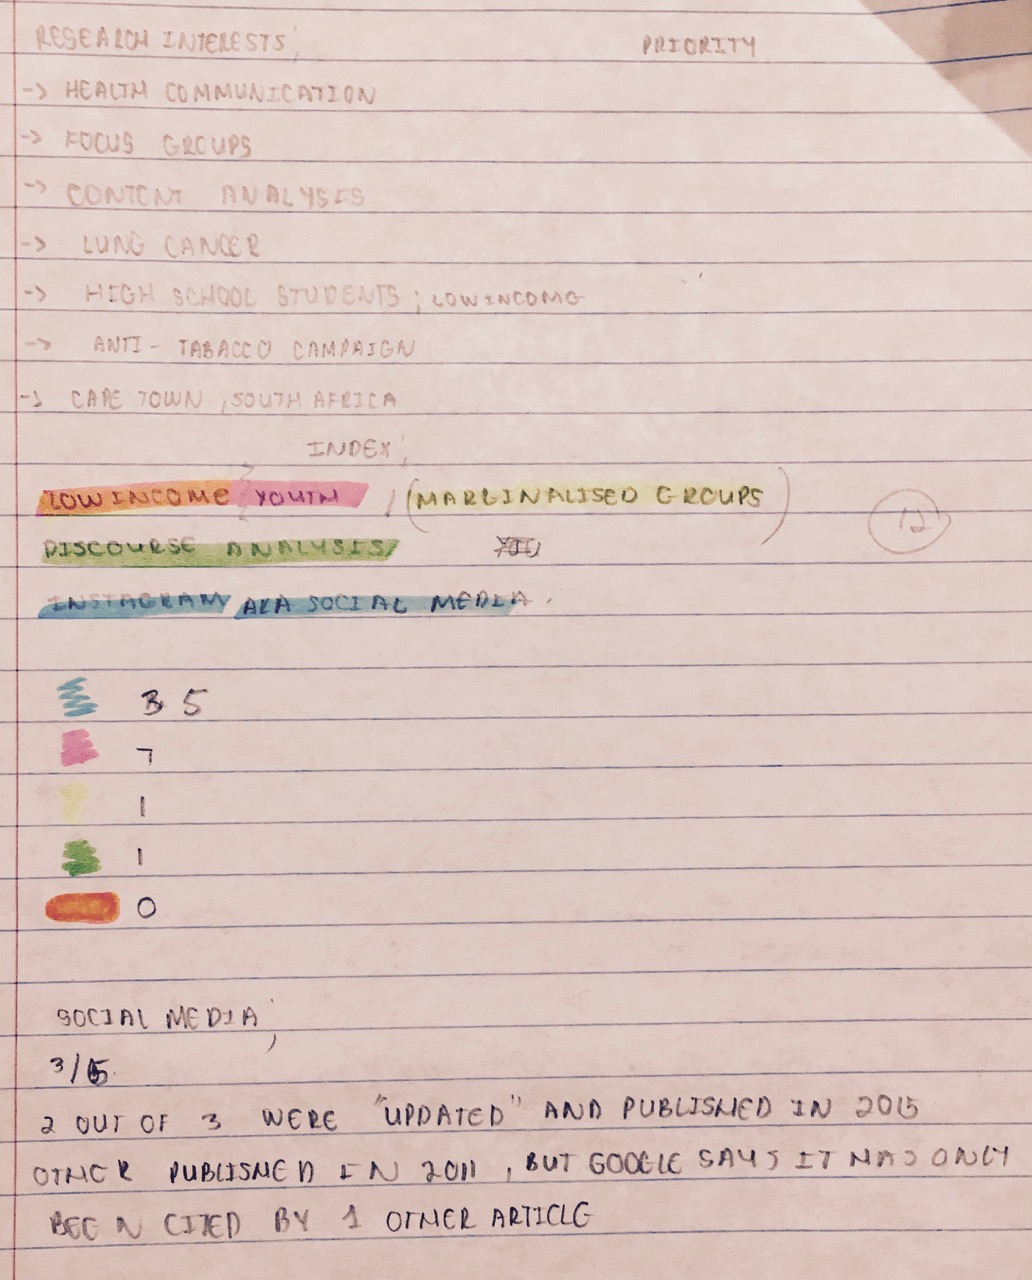 RESEARCH INTERESTS; PRIORITY
-> HEALTH COMMUNICATION
-> FOCUS GROUPS
-> CONTENT ANALYSIS
-> LUNG CANCER
-> HIGH SCHOOL STUDENTS; LOW INCOME
-> ANTI-TABACCO CAMPAIGN
-> CAPE TOWN, SOUTH AFRICA
INDEX;
LOW INCOME YOUTH / (MARGINALISED GROUPS)
DISCOURSE ANALYSIS
INSTAGRAM AKA SOCIAL MEDIA.
3 5
7
1
1
0
SOCIAL MEDIA;
3/5.
2 OUT OF 3 WERE "UPDATED" AND PUBLISHED IN 2015
OTHER PUBLISHED IN 2011, BUT GOOGLE SAYS IT HAS ONLY
BEEN CITED BY 1 OTHER ARTICLE